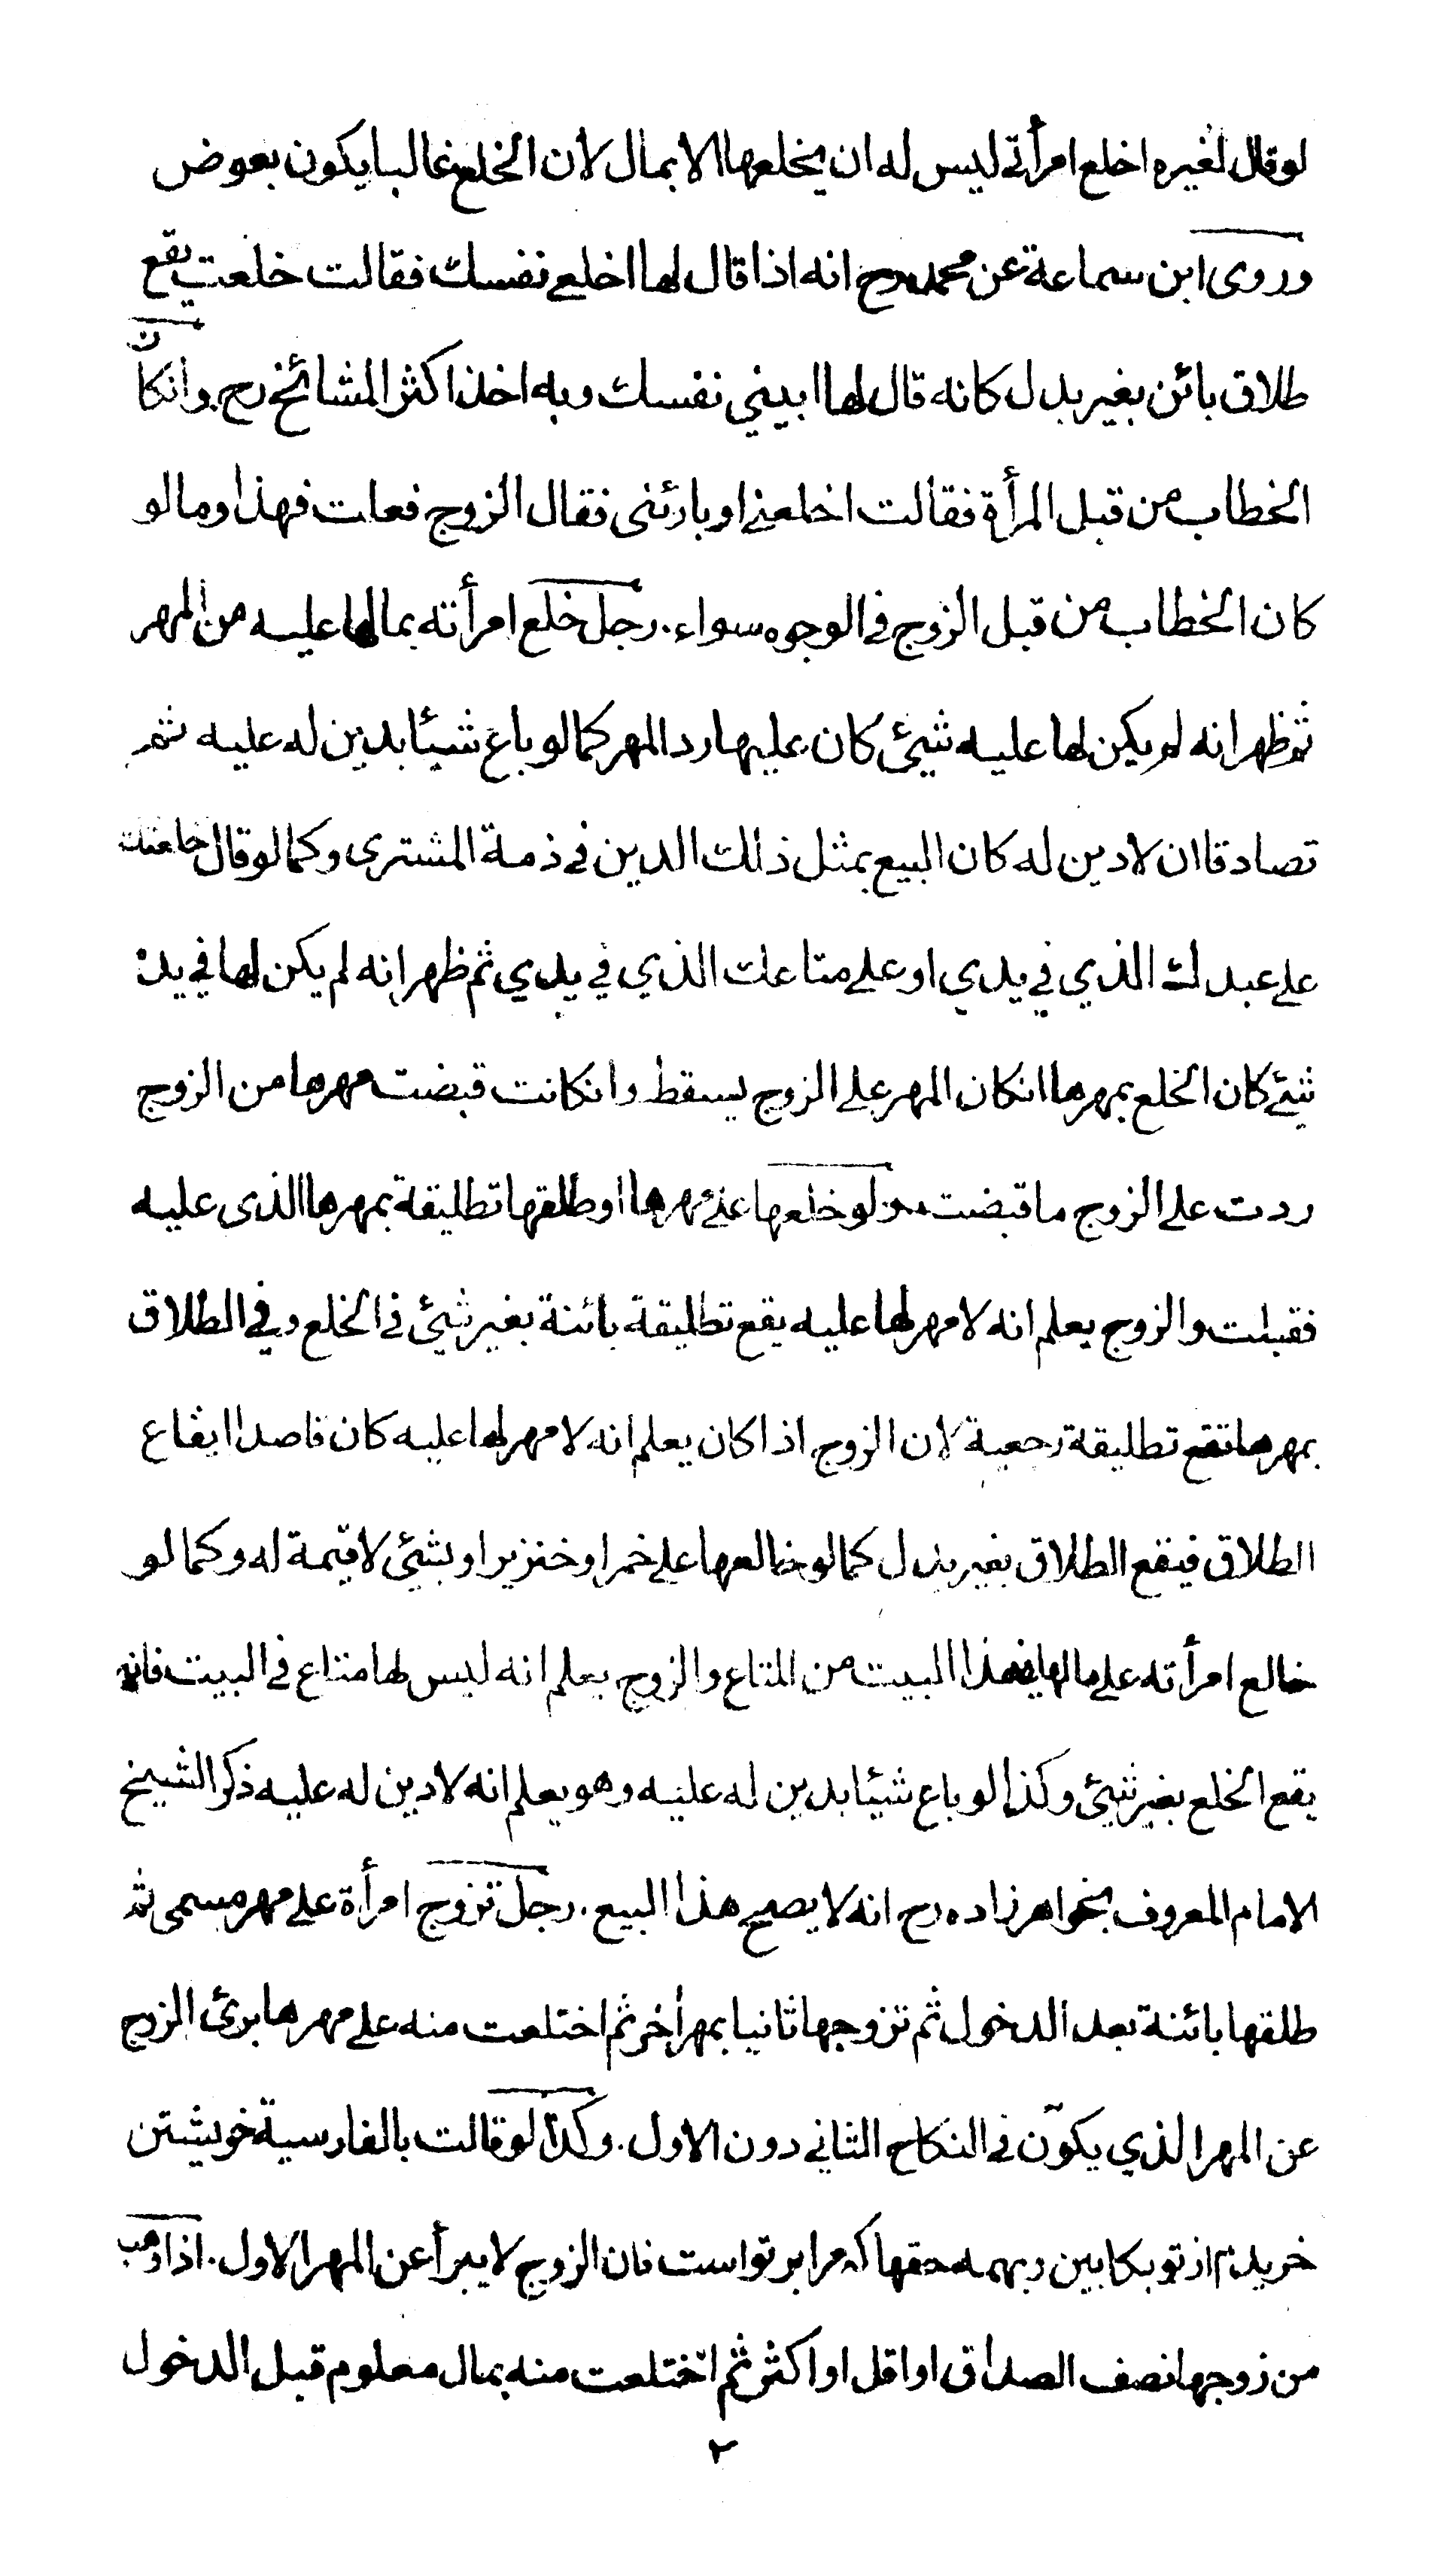 لو قال لغيره اخلع امرأتي ليس له ان يخلعها الا بمال لان الخلع غالبا يكون بعوض
وروى ابن سماعة عن محمد رح انه اذا قال لها اخلعي نفسك فقالت خلعت يقع
طلاق بائن بغير بدل كانه قال لها ابيني نفسك وبه اخذ اكثر المشائخ رح وانكان
الخطاب من قبل المرأة فقالت اخلعني او بارئني فقال الزوج فعلت فهذا وما لو
كان الخطاب من قبل الزوج في الوجوه سواء. رجل خلع امرأته بمالها عليه من المهر
ثم ظهر انه لم يكن لها عليه شيئ كان عليها رد المهر كما لو باع شيئا بدين له عليه ثم
تصادقا ان لا دين له كان البيع بمثل ذلك الدين في ذمة المشتري وكما لو قال خالعتك
على عبدك الذي في يدي او على متاعك الذي في يدي ثم ظهر انه لم يكن لها في يده
شيئ كان الخلع بمهرها انكان المهر على الزوج يسقط وانكانت قبضت مهرها من الزوج
ردت على الزوج ما قبضت ولو خلعها على مهرها او طلقها تطليقة بمهرها الذى عليه
فقبلت والزوج يعلم انه لا مهر لها عليه يقع تطليقة بائنة بغير شيئ في الخلع وفي الطلاق
بمهرها تقع تطليقة رجعية لان الزوج اذا كان يعلم انه لا مهر لها عليه كان قاصدا ايقاع
الطلاق فيقع الطلاق بغير بدل كما لو خالعها على خمر او خنزير او بشيئ لا قيمة له وكما لو
خالع امرأته على مالها في هذا البيت من المتاع والزوج يعلم انه ليس لها متاع في البيت فانه
يقع الخلع بغير شيئ وكذا لو باع شيئا بدين له عليه وهو يعلم انه لا دين له عليه ذكر الشيخ
الامام المعروف بخواهر زاده رح انه لا يصح هذا البيع. رجل تزوج امرأة على مهر مسمى ثم
طلقها بائنة بعد الدخول ثم تزوجها ثانيا بمهر اخر ثم اختلعت منه على مهرها برئ الزوج
عن المهر الذي يكون في النكاح الثاني دون الاول. وكذا لو قالت بالفارسية خويشتن
خريدم از تو بكابين وبهمه حقها كه مرا بر تواست فان الزوج لا يبرأ عن المهر الاول. اذا وهبت
من زوجها نصف الصداق او اقل او اكثر ثم اختلعت منه بمال معلوم قبل الدخول
٢